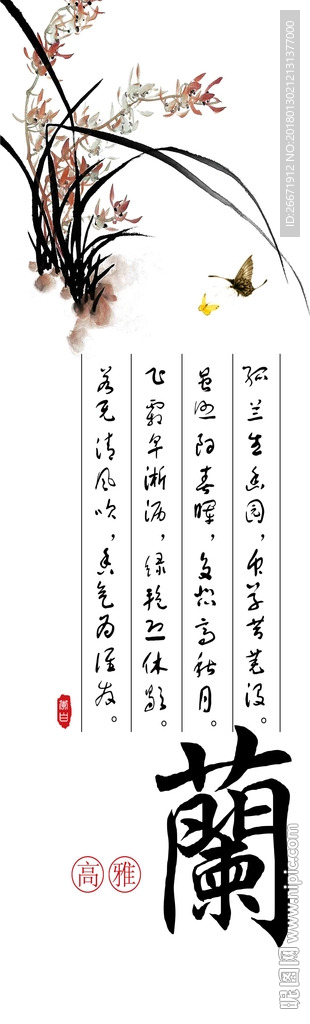 孤兰生幽园，众草共芜没。
虽照阳春晖，复悲高秋月。
飞霜早淅沥，绿艳恐休歇。
若无清风吹，香气为谁发。
蘭
高雅
ID:26671912 NO:20180130212131377000
昵图网 www.nipic.com